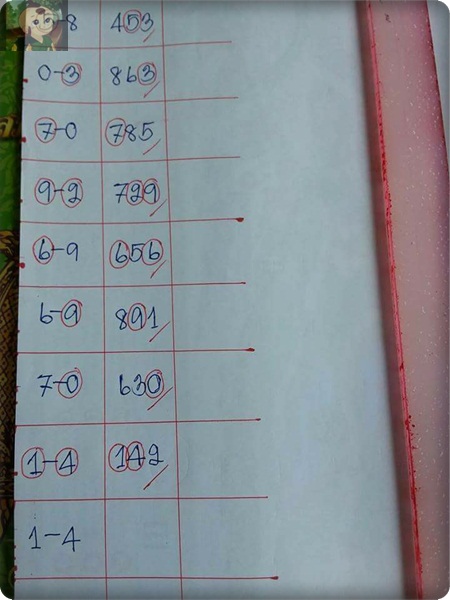 -8 453
0-3 863
7-0 785
9-2 729
6-9 656
6-9 891
7-0 630
1-4 142
1-4